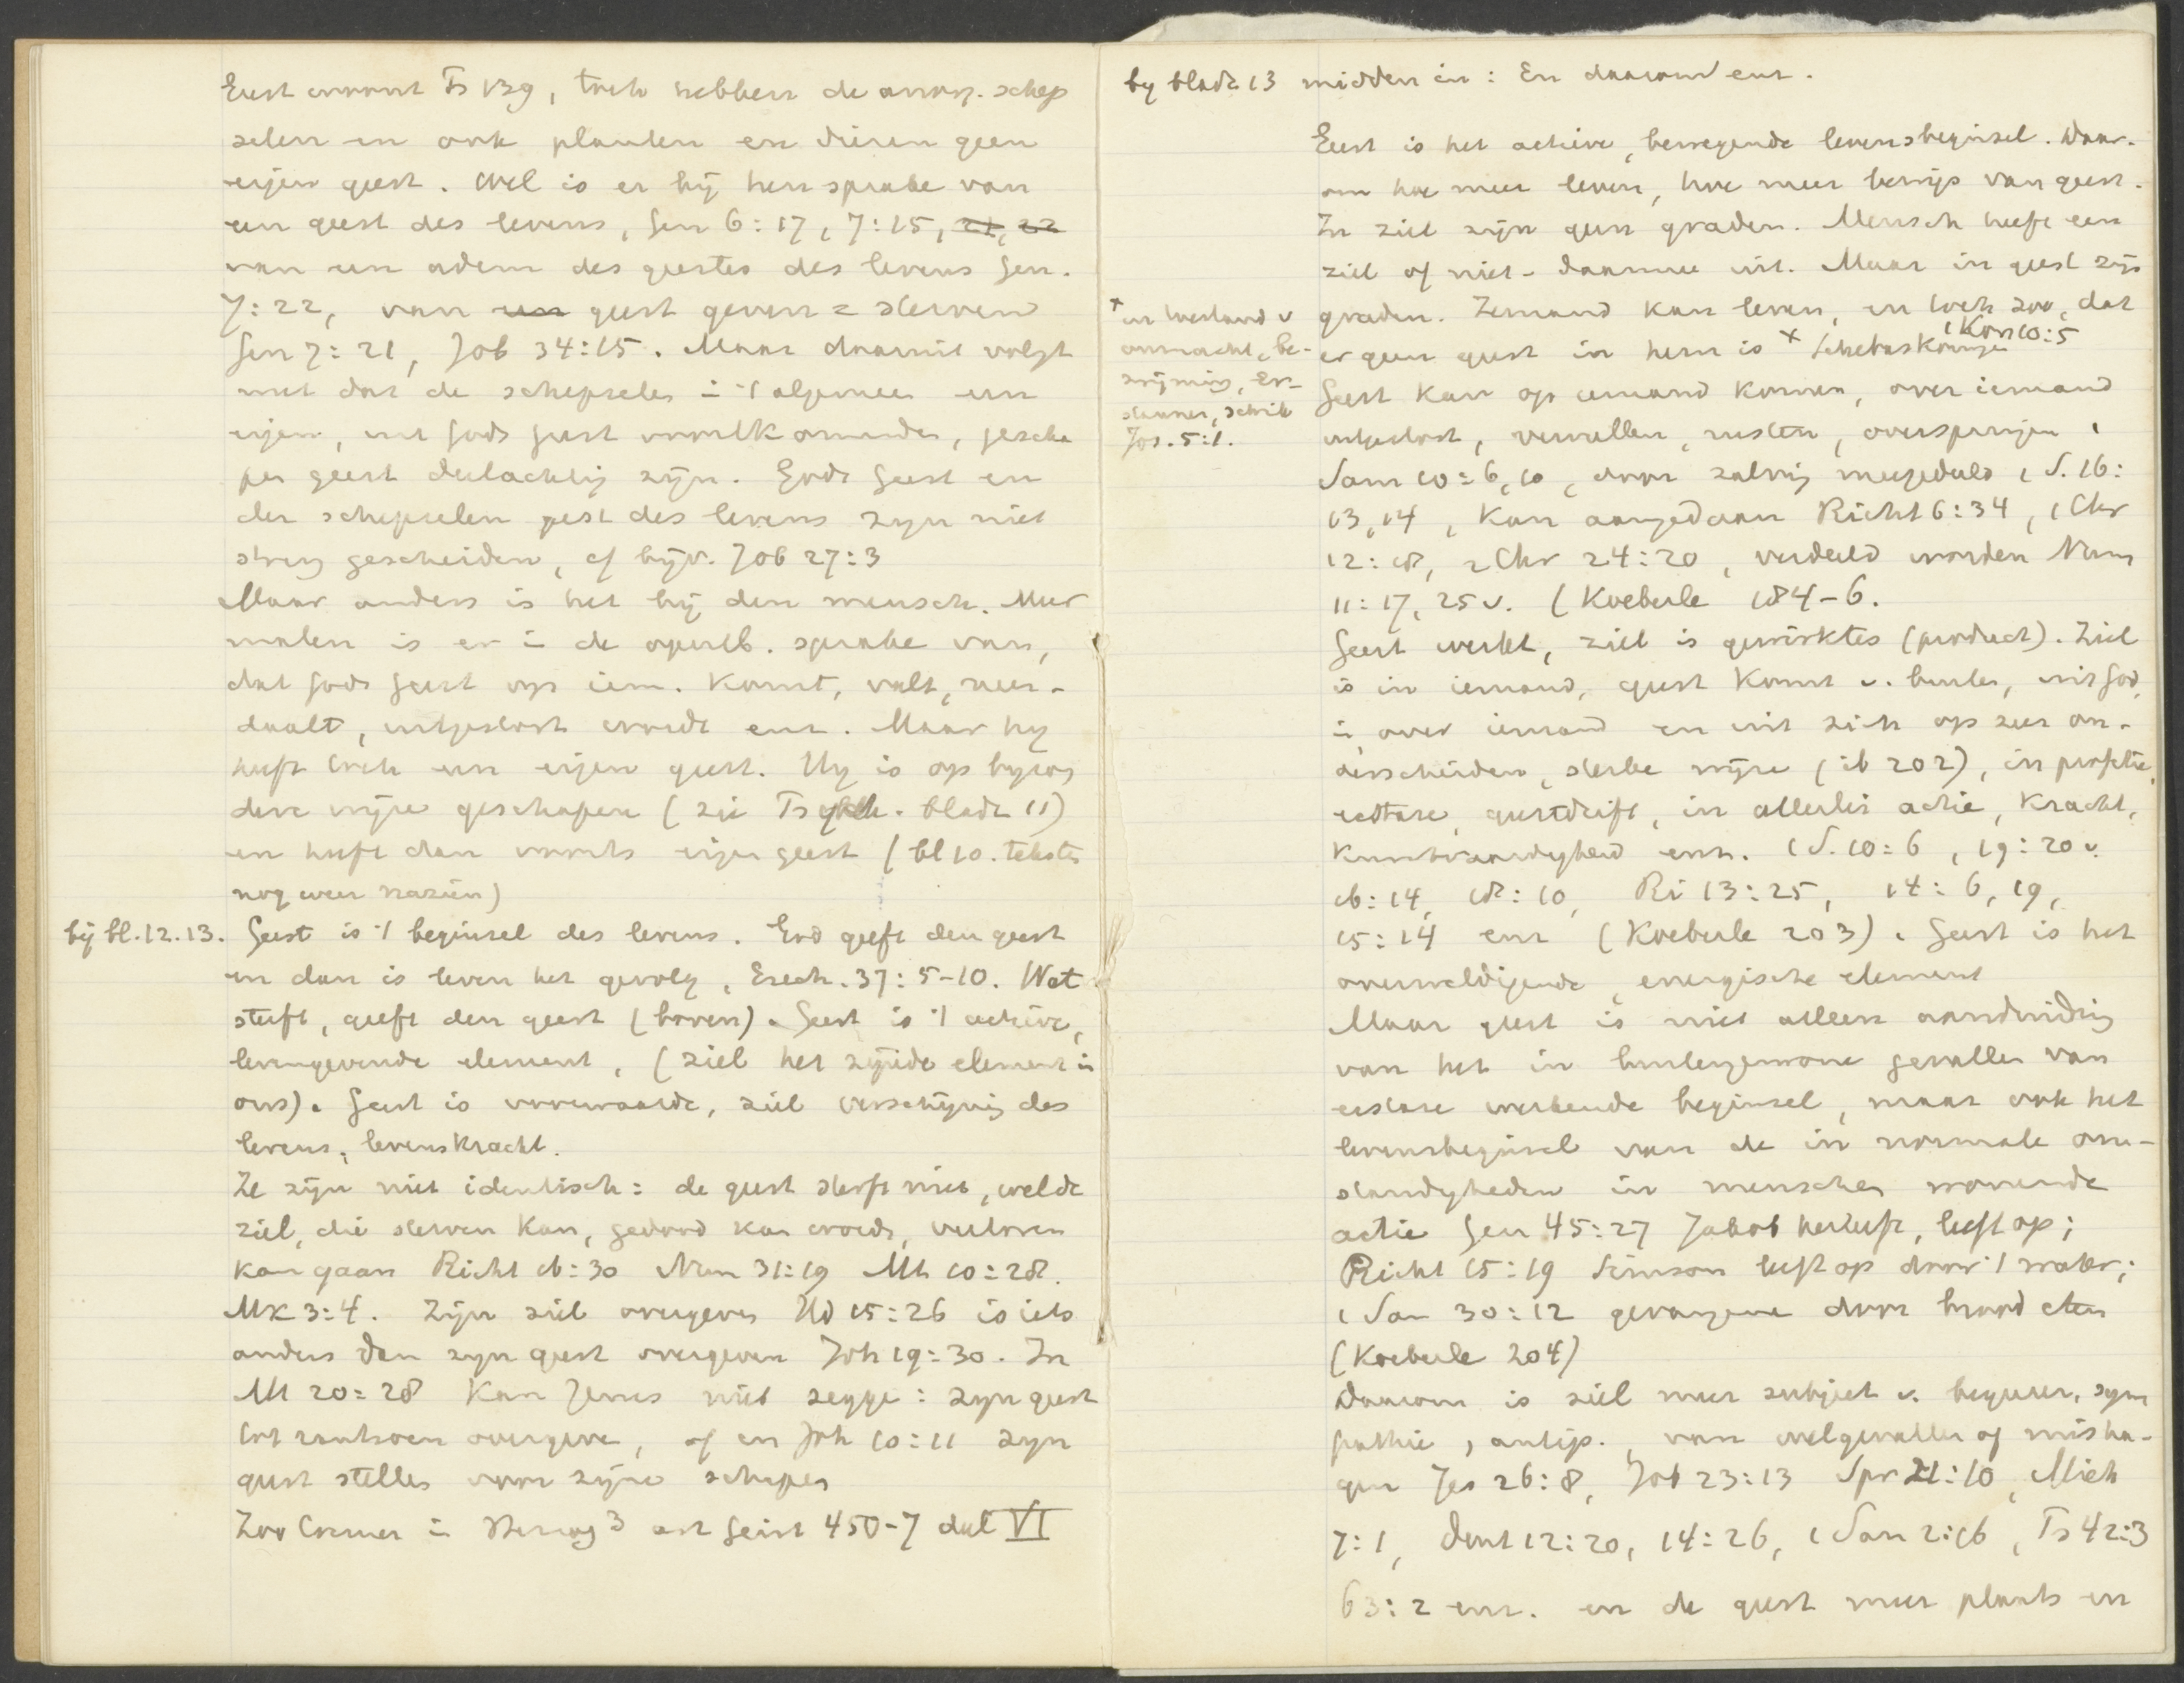 Geest woont Ps 139, toch hebben de onrz. schep
selen en ook planten en dieren geen
eigen geest. Wel is er bij hen sprake van
een geest des levens, Gen 6:17, 7:15, 21, 22
van een adem des geestes des levens Gen.
7:22, van een geest geven = sterven
Gen 7:21, Job 34:15. Maar daaruit volgt
niet dat de schepselen i 't algemeen een
eigen, uit Gods geest voortkomenden, gescha
pen geest deelachtig zijn. Gods Geest en
der schepselen geest des levens zijn niet
streng gescheiden, cf bijv. Job 27:3
Maar anders is het bij den mensch. Meer
malen is er i de openb. sprake van,
dat Gods Geest op iem. komt, valt, neer-
daalt, uitgestort wordt enz. Maar hij
heeft toch een eigen geest. Hij is op byzon
dere wijze geschapen (zie Psych. bladz 11)
en heeft dan voorts eigen geest (bl 10. teksten
nog weer nazien)
bij bl. 12. 13. Geest is 't beginsel des levens. God geeft den geest
en dan is leven het gevolg, Ezech. 37:5-10. Wat
sterft, geeft den geest (boven). Geest is 't actieve,
levengevende element, (ziel het zijnde element in
ons). Geest is voorwaarde, ziel verschijning des
levens, levenskracht.
Ze zijn niet identisch: de geest sterft niet, wel de
ziel, die sterven kan, gedood kan worden, verloren
kan gaan Richt 16:30 Num 31:19 Mt 10:28.
Mk 3:4. Zijn ziel overgeven Hd 15:26 is iets
anders dan zijn geest overgeven Joh 19:30. In
Mt 20:28 kan Jezus niet zeggen: zijn geest
tot rantsoen overgeve, of en Joh 10:11 zijn
geest stellen voor zijne schapen
Zoo Cremer in Herzog 3 art Geist 450-7 deel VI
by bladz 13 midden in: En daarom enz.
Geest is het actieve, bewegende levensbeginsel. Daar-
om hoe meer leven, hoe meer bewijs van geest.
In ziel zijn geen graden. Mensch heeft een
ziel of niet - daarmee uit. Maar in geest zijn
graden. Iemand kan leven, en toch zoo, dat
er geen geest in hem is × Schebaskoningin 1 Kon 10:5
× in toestand v
onmacht, be-
zwijming, er-
staunen, schrik
Joz. 5:1.
Geest kan op iemand komen, over iemand
uitgestort, vervullen, rusten, overspringen 1
Sam 10:6, 10, door zalving meegedeeld 1 S. 16:
13, 14, kan aangedaan Richt 6:34, 1 Chr
12:18, 2 Chr 24:20, verdeeld worden Num
11:17, 25 v. (Koeberle 184-6.
Geest werkt, ziel is gewirktes (product). Ziel
is in iemand, geest komt v. buiten, uit God,
i, over iemand en uit zich op zeer on-
derscheiden, sterke wijze (ib 202), in profetie,
extase, geestdrift, in allerlei actie, kracht,
kunstvaardigheid enz. 1 S. 10:6, 19:20 v.
16:14, 18:10, Ri 13:25, 14:6, 19,
15:14 enz (Koeberle 203). Geest is het
overweldigende, energische element
Maar geest is niet alleen aanduiding
van het in buitengewone gevallen van
extase werkende beginsel, maar ook het
levensbeginsel van de in normale om-
standigheden in menschen wonende
actie Gen 45:27 Jakob herleeft, leeft op;
Richt 15:19 Simson leeft op door 't water;
1 Sam 30:12 gevangene door brood eten
(Koeberle 204)
Daarom is ziel meer subject v. begeeren, sym
pathie, antip., van welgevallen of misha-
gen Jes 26:8, Job 23:13 Spr 21:10, Mich
7:1, Deut 12:20, 14:26, 1 Sam 2:16, Ps 42:3
63:2 enz. en de geest meer plaats en